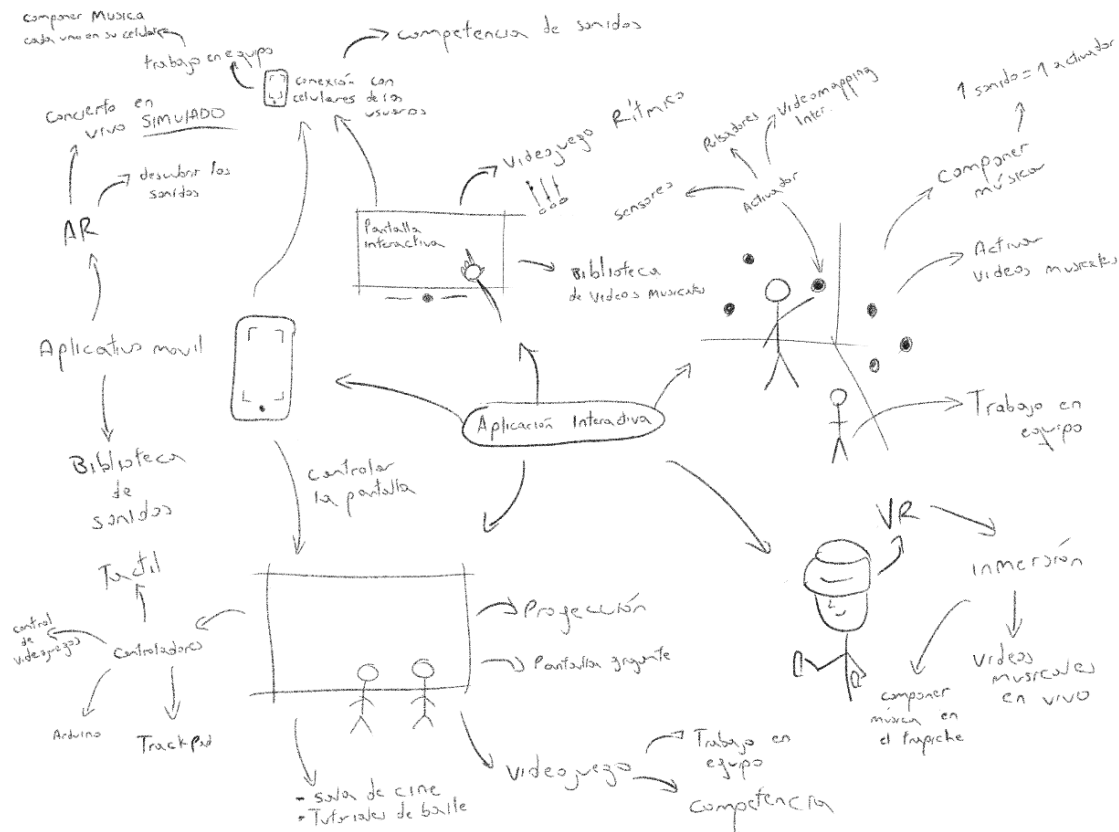 componer Musica
cada uno en su celular
trabajo en equipo
conexión con
celulares de los
usuarios
competencia de sonidos
Concierto en
vivo SIMULADO
descubrir los
sonidos
AR
Aplicativo movil
Biblioteca
de
sonidos
Pantalla
interactiva
Videojuego Rítmico
Biblioteca
de videos musicales
Pulsadores
Videomapping
Inter.
sensores
Activador
1 sonido = 1 activador
Componer
música
Activar
videos musicales
Trabajo en
equipo
Aplicación Interactiva
controlar
la pantalla
Tactil
control
de
videojuegos
Controladores
Arduino
TrackPad
Proyección
Pantalla gigante
- sala de cine
- Tutoriales de baile
Videojuego
Trabajo en
equipo
Competencia
VR
inmersión
componer
música en
el trapiche
Videos
musicales
en vivo